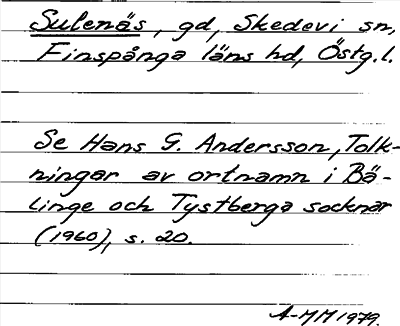 Sulenäs, gd, Skedevi sn,
Finspånga läns hd, Östg.l.
Se Hans G. Andersson, Tolk-
ningar av ortnamn i Bä-
linge och Tystberga socknar
(1960), s. 20.
A-MM 1979.